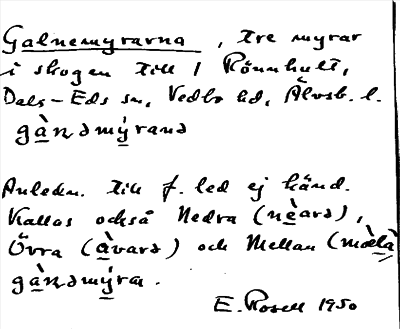 Galnemyrarna, tre myrar
i skogen till 1 Rönnhult,
Dals-Eds sn, Vedbo hd, Älvsb. l.
gà̱nəmỳ̱ranə
Anledn. till f. led ej känd.
Kallas också Nedra (nè̱arə),
Övra (à̱varə) och Mellan (mæ̀là)
gà̱nəmỳ̱ra.
E. Rosell 1950